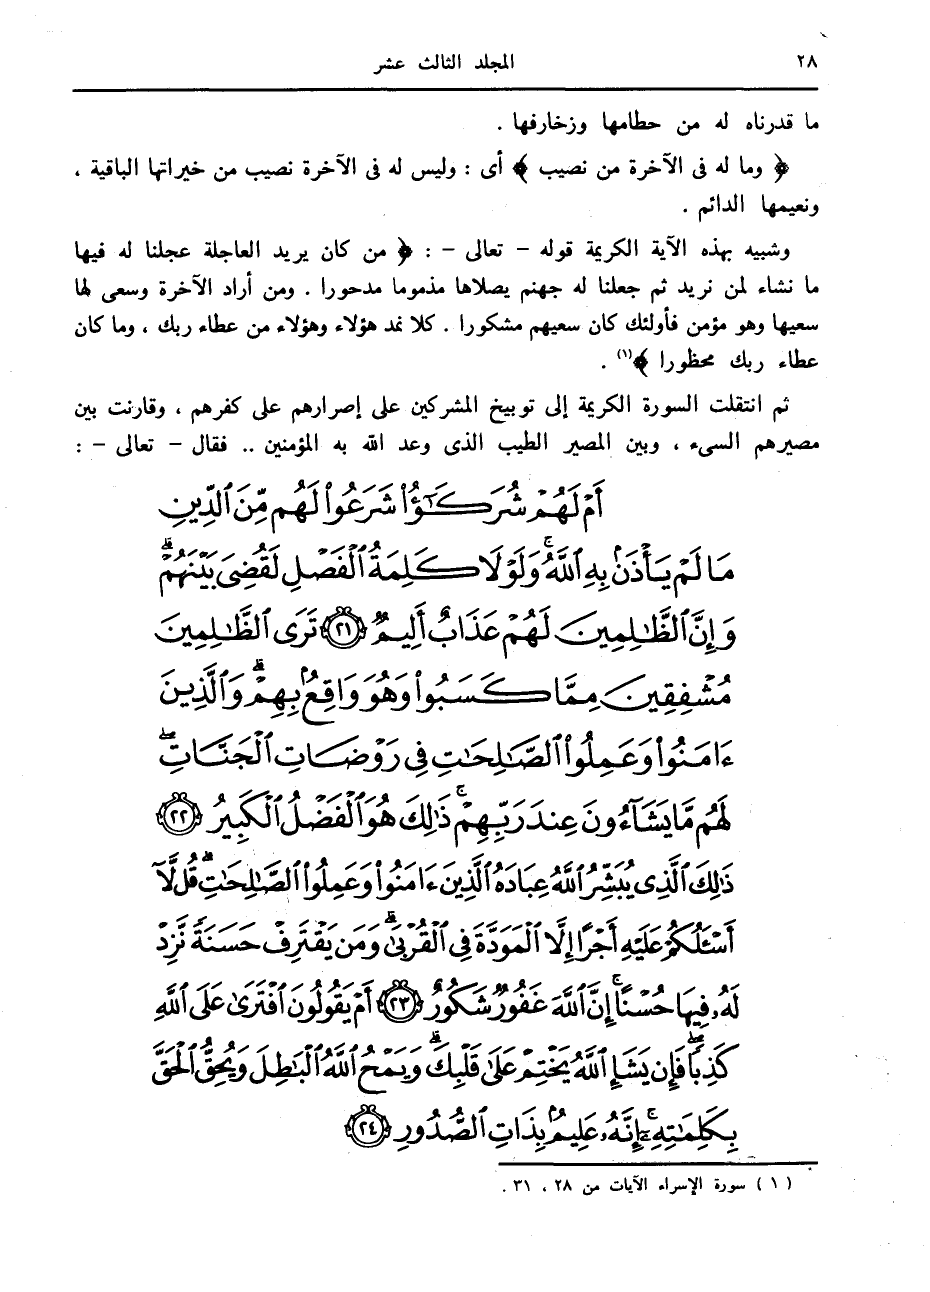 ٢٨
المجلد الثالث عشر
ما قدرناه له من حطامها وزخارفها .
﴿ وما له فى الآخرة من نصيب ﴾ أى : وليس له فى الآخرة نصيب من خيراتها الباقية ،
ونعيمها الدائم .
وشبيه بهذه الآية الكريمة قوله – تعالى – : ﴿ من كان يريد العاجلة عجلنا له فيها
ما نشاء لمن نريد ثم جعلنا له جهنم يصلاها مذموما مدحورا . ومن أراد الآخرة وسعى لها
سعيها وهو مؤمن فأولئك كان سعيهم مشكورا . كلا نمد هؤلاء وهؤلاء من عطاء ربك ، وما كان
عطاء ربك محظورا ﴾(١) .
ثم انتقلت السورة الكريمة إلى توبيخ المشركين على إصرارهم على كفرهم ، وقارنت بين
مصيرهم السىء ، وبين المصير الطيب الذى وعد الله به المؤمنين .. فقال – تعالى – :
أَمْ لَهُمْ شُرَكَـٰٓؤُا۟ شَرَعُوا۟ لَهُم مِّنَ ٱلدِّينِ
مَا لَمْ يَأْذَنۢ بِهِ ٱللَّهُ ۚ وَلَوْلَا كَلِمَةُ ٱلْفَصْلِ لَقُضِىَ بَيْنَهُمْ ۗ
وَإِنَّ ٱلظَّـٰلِمِينَ لَهُمْ عَذَابٌ أَلِيمٌ ٢١ تَرَى ٱلظَّـٰلِمِينَ
مُشْفِقِينَ مِمَّا كَسَبُوا۟ وَهُوَ وَاقِعٌۢ بِهِمْ ۗ وَٱلَّذِينَ
ءَامَنُوا۟ وَعَمِلُوا۟ ٱلصَّـٰلِحَـٰتِ فِى رَوْضَاتِ ٱلْجَنَّاتِ ۖ
لَهُم مَّا يَشَآءُونَ عِندَ رَبِّهِمْ ۚ ذَٰلِكَ هُوَ ٱلْفَضْلُ ٱلْكَبِيرُ ٢٢
ذَٰلِكَ ٱلَّذِى يُبَشِّرُ ٱللَّهُ عِبَادَهُ ٱلَّذِينَ ءَامَنُوا۟ وَعَمِلُوا۟ ٱلصَّـٰلِحَـٰتِ ۗ قُل لَّآ
أَسْـَٔلُكُمْ عَلَيْهِ أَجْرًا إِلَّا ٱلْمَوَدَّةَ فِى ٱلْقُرْبَىٰ ۗ وَمَن يَقْتَرِفْ حَسَنَةً نَّزِدْ
لَهُۥ فِيهَا حُسْنًا ۚ إِنَّ ٱللَّهَ غَفُورٌ شَكُورٌ ٢٣ أَمْ يَقُولُونَ ٱفْتَرَىٰ عَلَى ٱللَّهِ
كَذِبًا ۖ فَإِن يَشَإِ ٱللَّهُ يَخْتِمْ عَلَىٰ قَلْبِكَ ۗ وَيَمْحُ ٱللَّهُ ٱلْبَـٰطِلَ وَيُحِقُّ ٱلْحَقَّ
بِكَلِمَـٰتِهِۦٓ ۚ إِنَّهُۥ عَلِيمٌۢ بِذَاتِ ٱلصُّدُورِ ٢٤
( ١ ) سورة الإسراء الآيات من ٢٨ ، ٣١ .